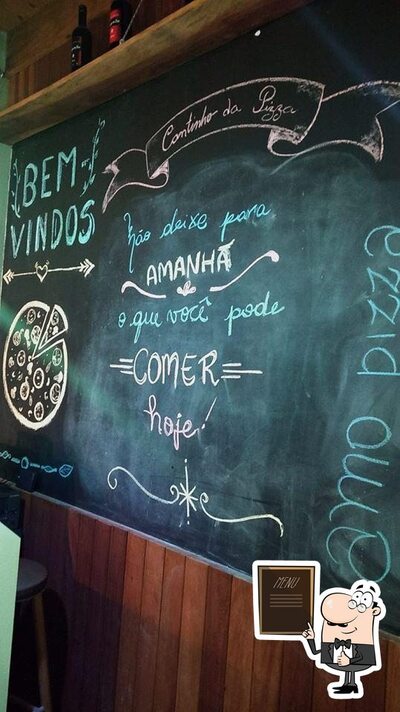 Cantinho da Pizza
BEM-
VINDOS
Não deixe para
AMANHÃ
o que você pode
COMER
hoje!
pizza
MENU